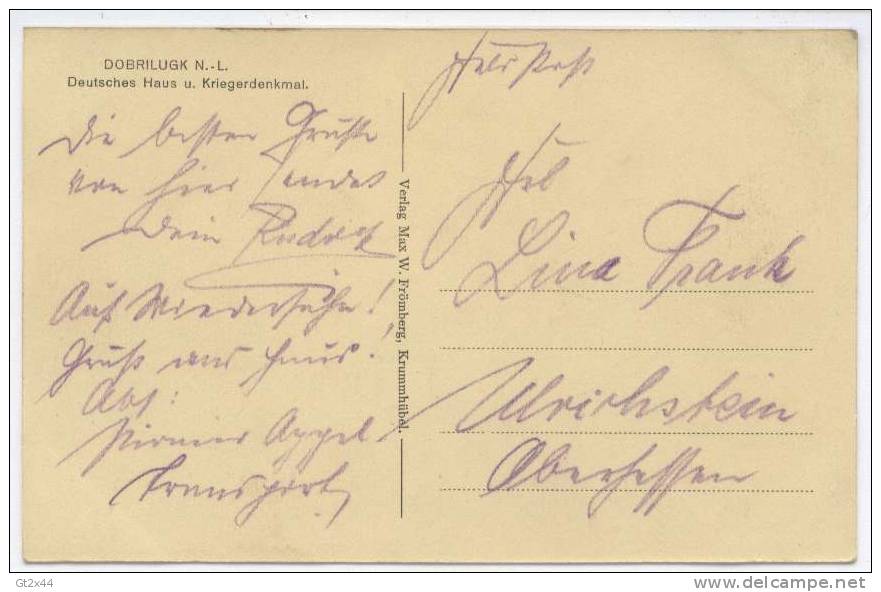 DOBRILUGK N.-L.
Deutsches Haus u. Kriegerdenkmal.
Die besten Grüße
von hier sendet
Dein Rudolf
Auf Wiedersehn!
Gruß ans Haus!
Abs:
Appel
Transport
Verlag Max W. Frömberg, Krummhübel.
Feldpost
Frl
Lina Frank
Ulrichstein
Oberhessen
Gt2x44
delcampe.net